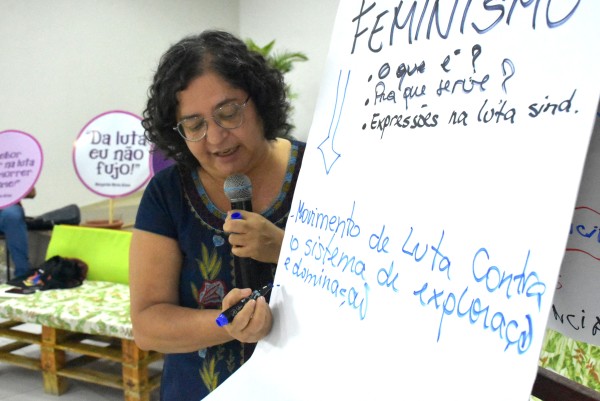 FEMINISMO
. O que é?
. Pra que serve?
. Expressões na luta sind.
- Movimento de Luta Contra
o sistema de exploraçõ
e dominação
"Da luta
eu não
fujo!"
na luta